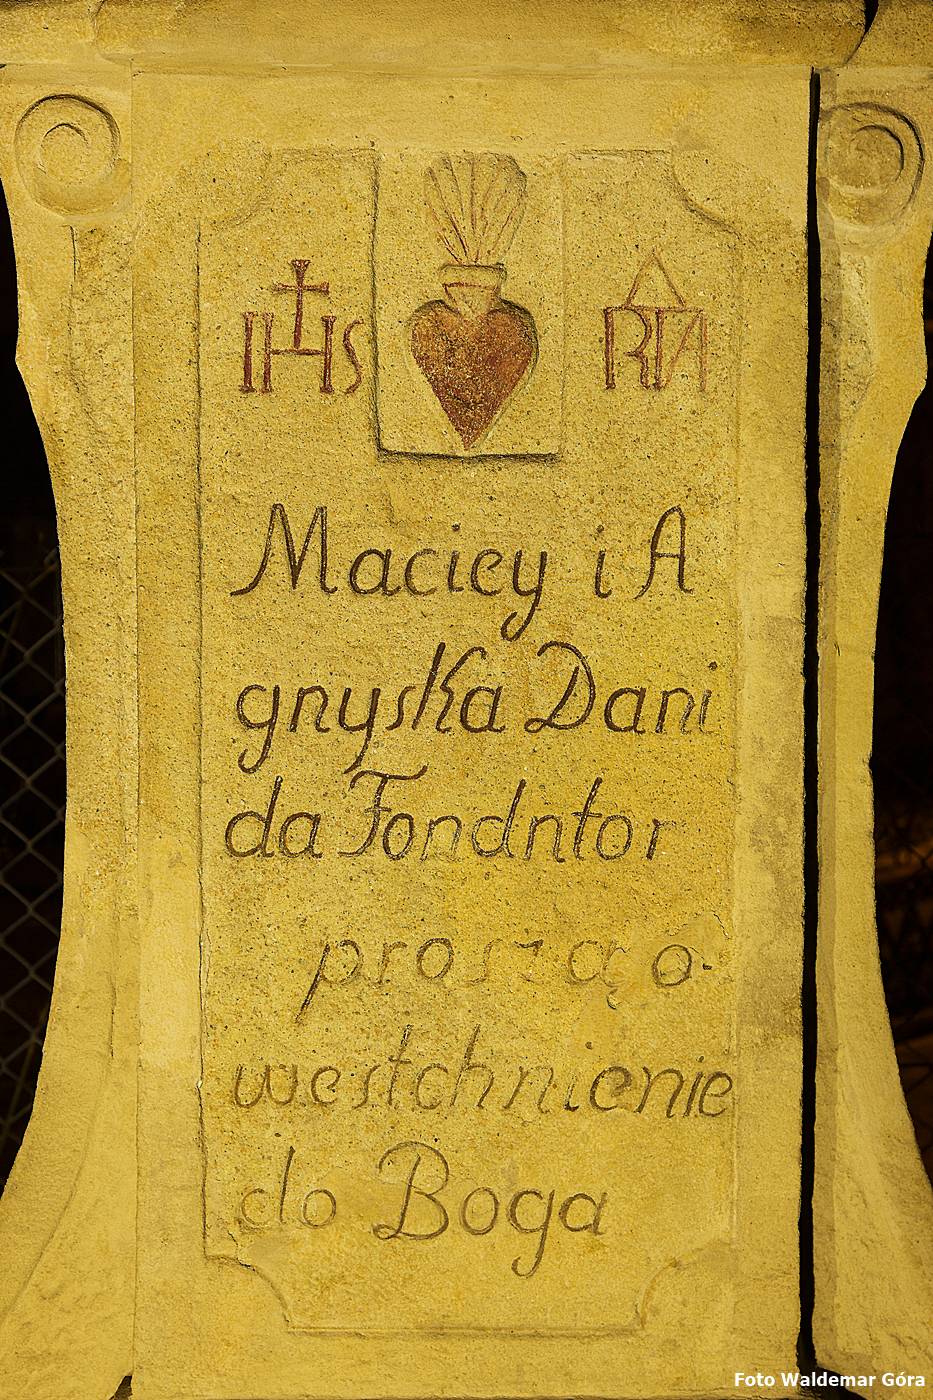 IHS
Maciey i A
gnyska Dani
da Fondntor
proszą o
westchnienie
do Boga
Foto Waldemar Góra